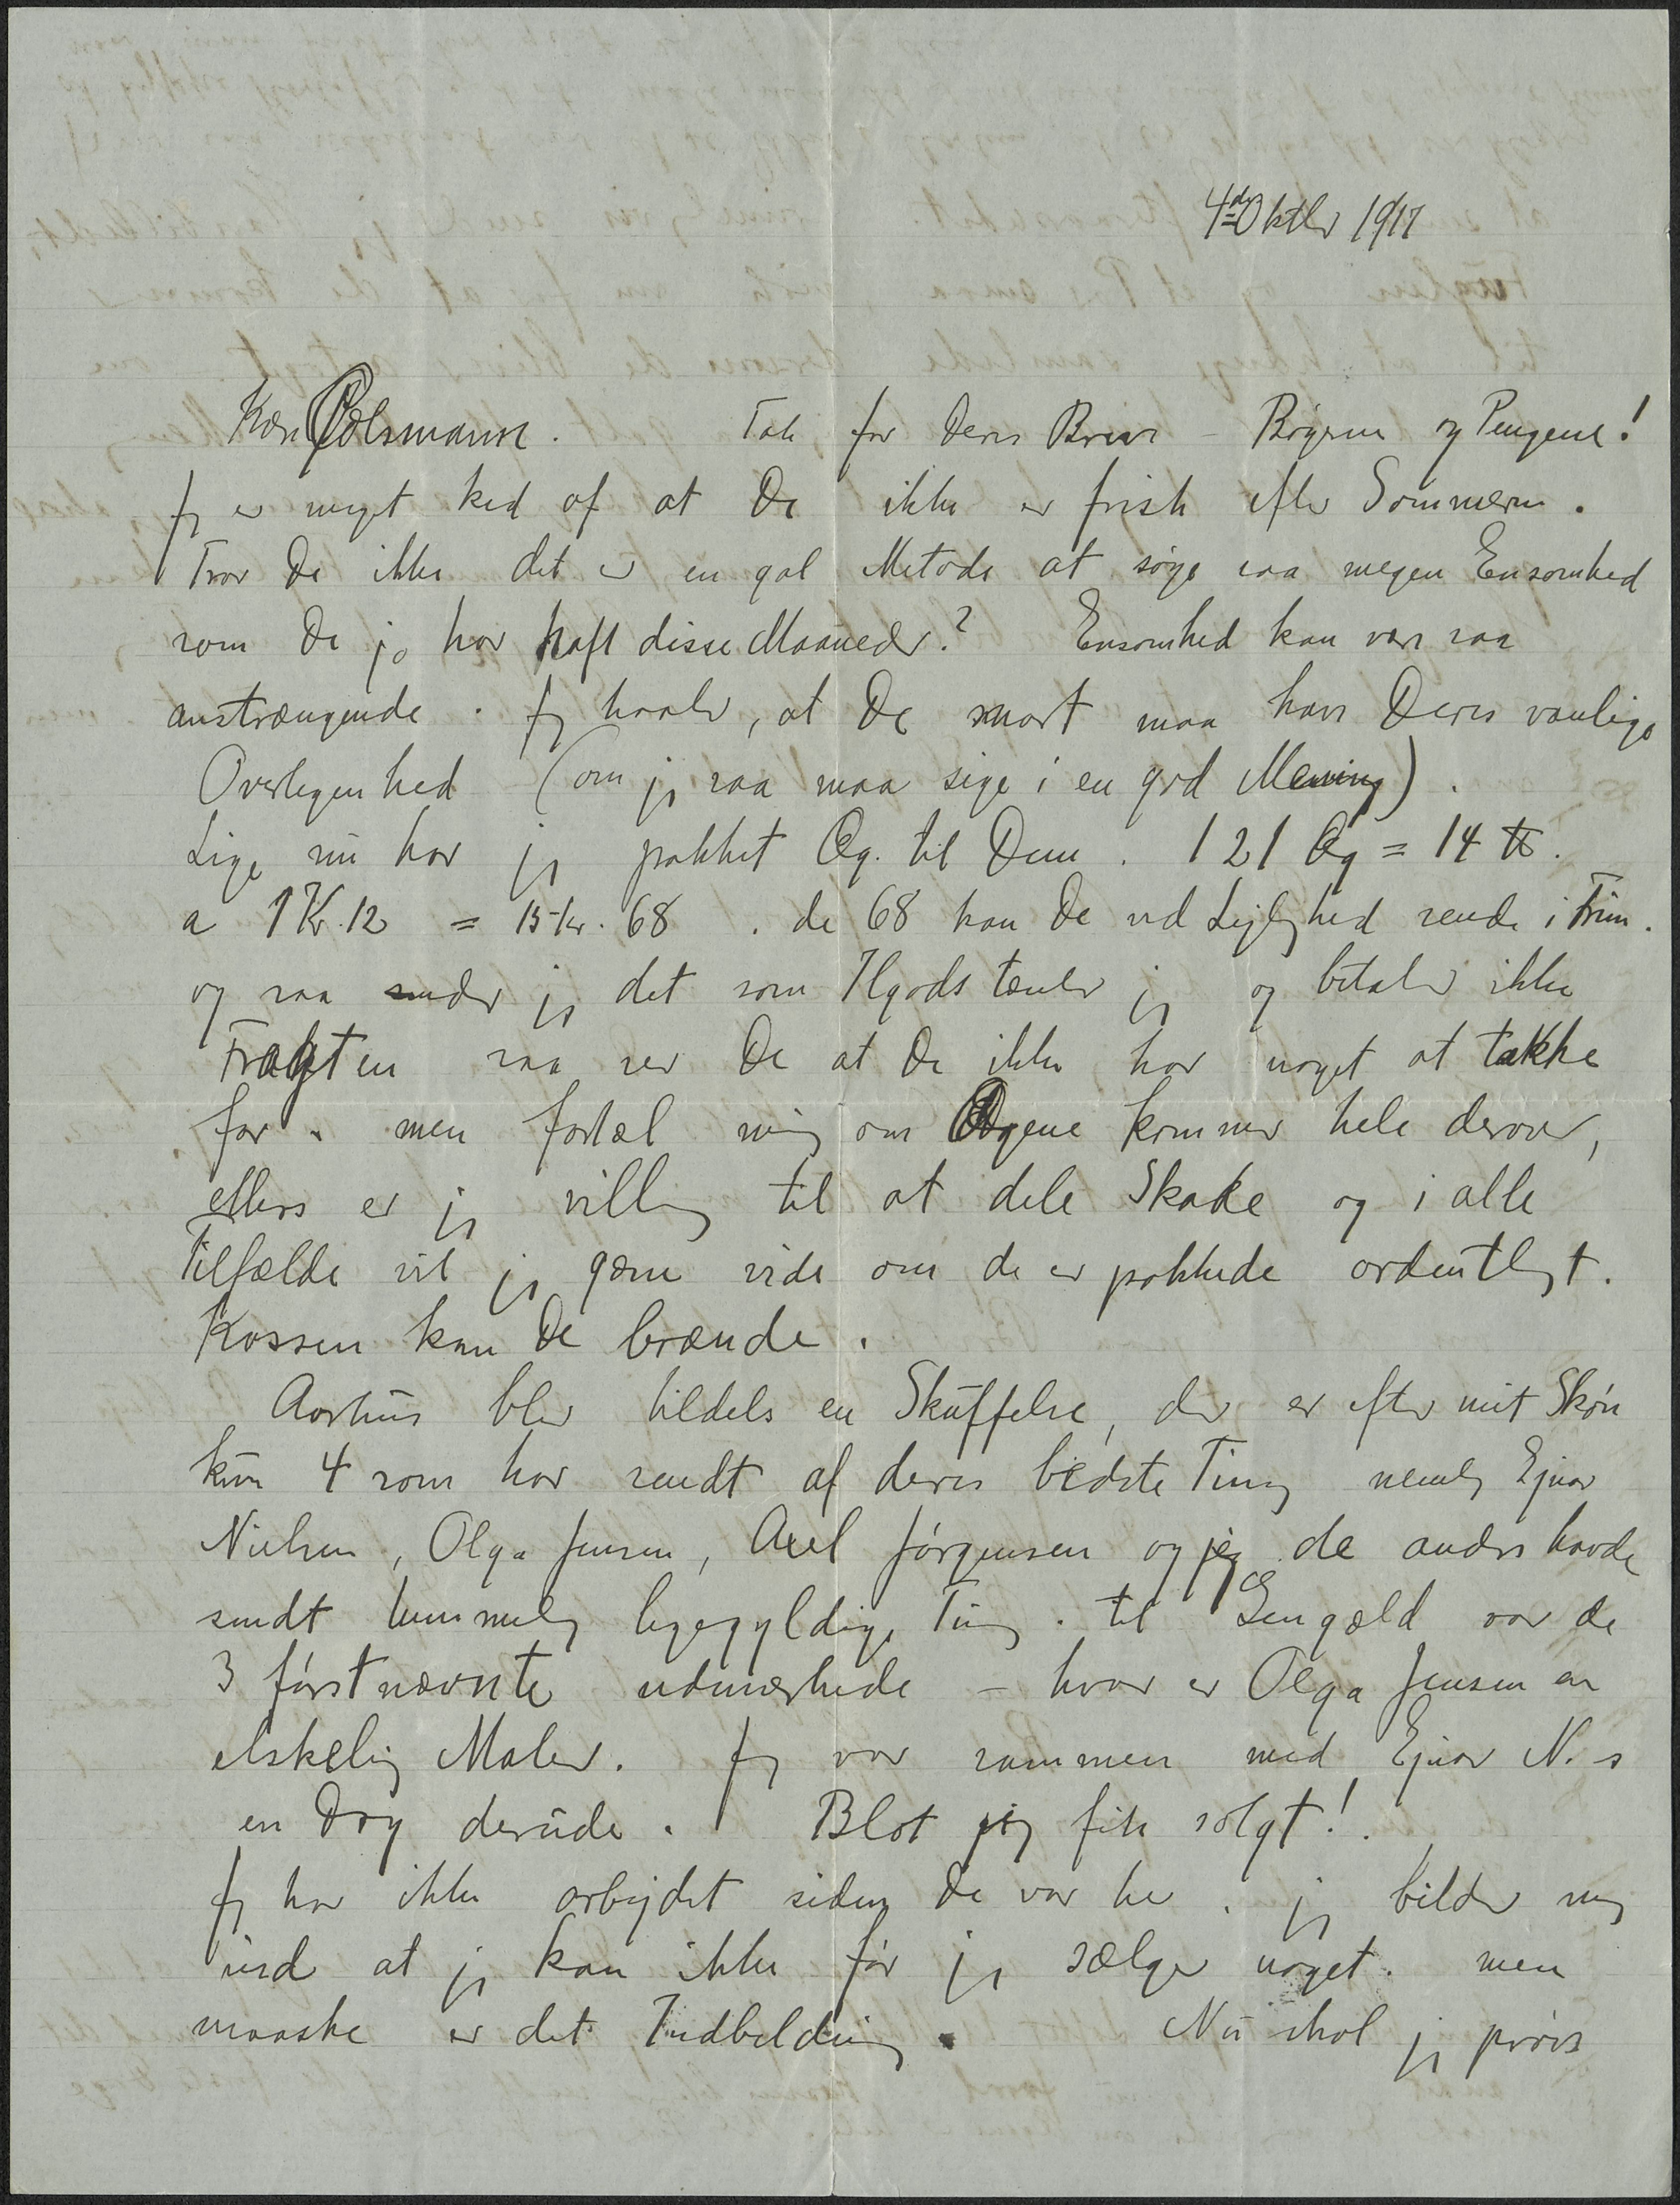 4de Oktbr 1917
Kære Oelsmann. Tak for Deres Breve – Bøgerne og Pengene!
Jeg er meget ked af at De ikke er frisk efter Sommeren.
Tror De ikke det er en gal Metode at søge saa megen Ensomhed
som De jo har haft disse Maaneder? Ensomhed kan være saa
anstrængende. Jeg haaber, at De snart maa have Deres vanlige
Overlegenhed (om jeg saa maa sige i en god Mening).
Lige nu har jeg pakket Æg til Dem. 121 Æg = 14 ℔.
a 1 Kr. 12 = 15 Kr. 68. de 68 kan De ved Lejlighed sende i Frim.
og saa sender jeg det som Ilgods tænker jeg og betaler ikke
Fragten saa ser De at De ikke har noget at takke
for. men fortæl mig om Æggene kommer hele derover,
ellers er jeg villig til at dele Skade og i alle
Tilfælde vil jeg gærne vide om de er pakkede ordentligt.
Kassen kan De brænde.
Aarhus blev tildels en Skuffelse, der er efter mit Skøn
kun 4 som har sendt af deres bedste Ting nemlig Ejnar
Nielsen, Olga Jensen, Axel Jørgensen og jeg de andre havde
sendt temmelig ligegyldige Ting. til Gengæld var de
3 førstnævnte udmærkede – hvor er Olga Jensen en
elskelig Maler. Jeg var sammen med Ejnar N.s
en Dag derude. Blot jeg fik solgt!
Jeg har ikke arbejdet siden De var her. jeg bilder mig
ind at jeg kan ikke før jeg sælger noget. men
maaske er det Indbildning. Nu skal jeg prøve